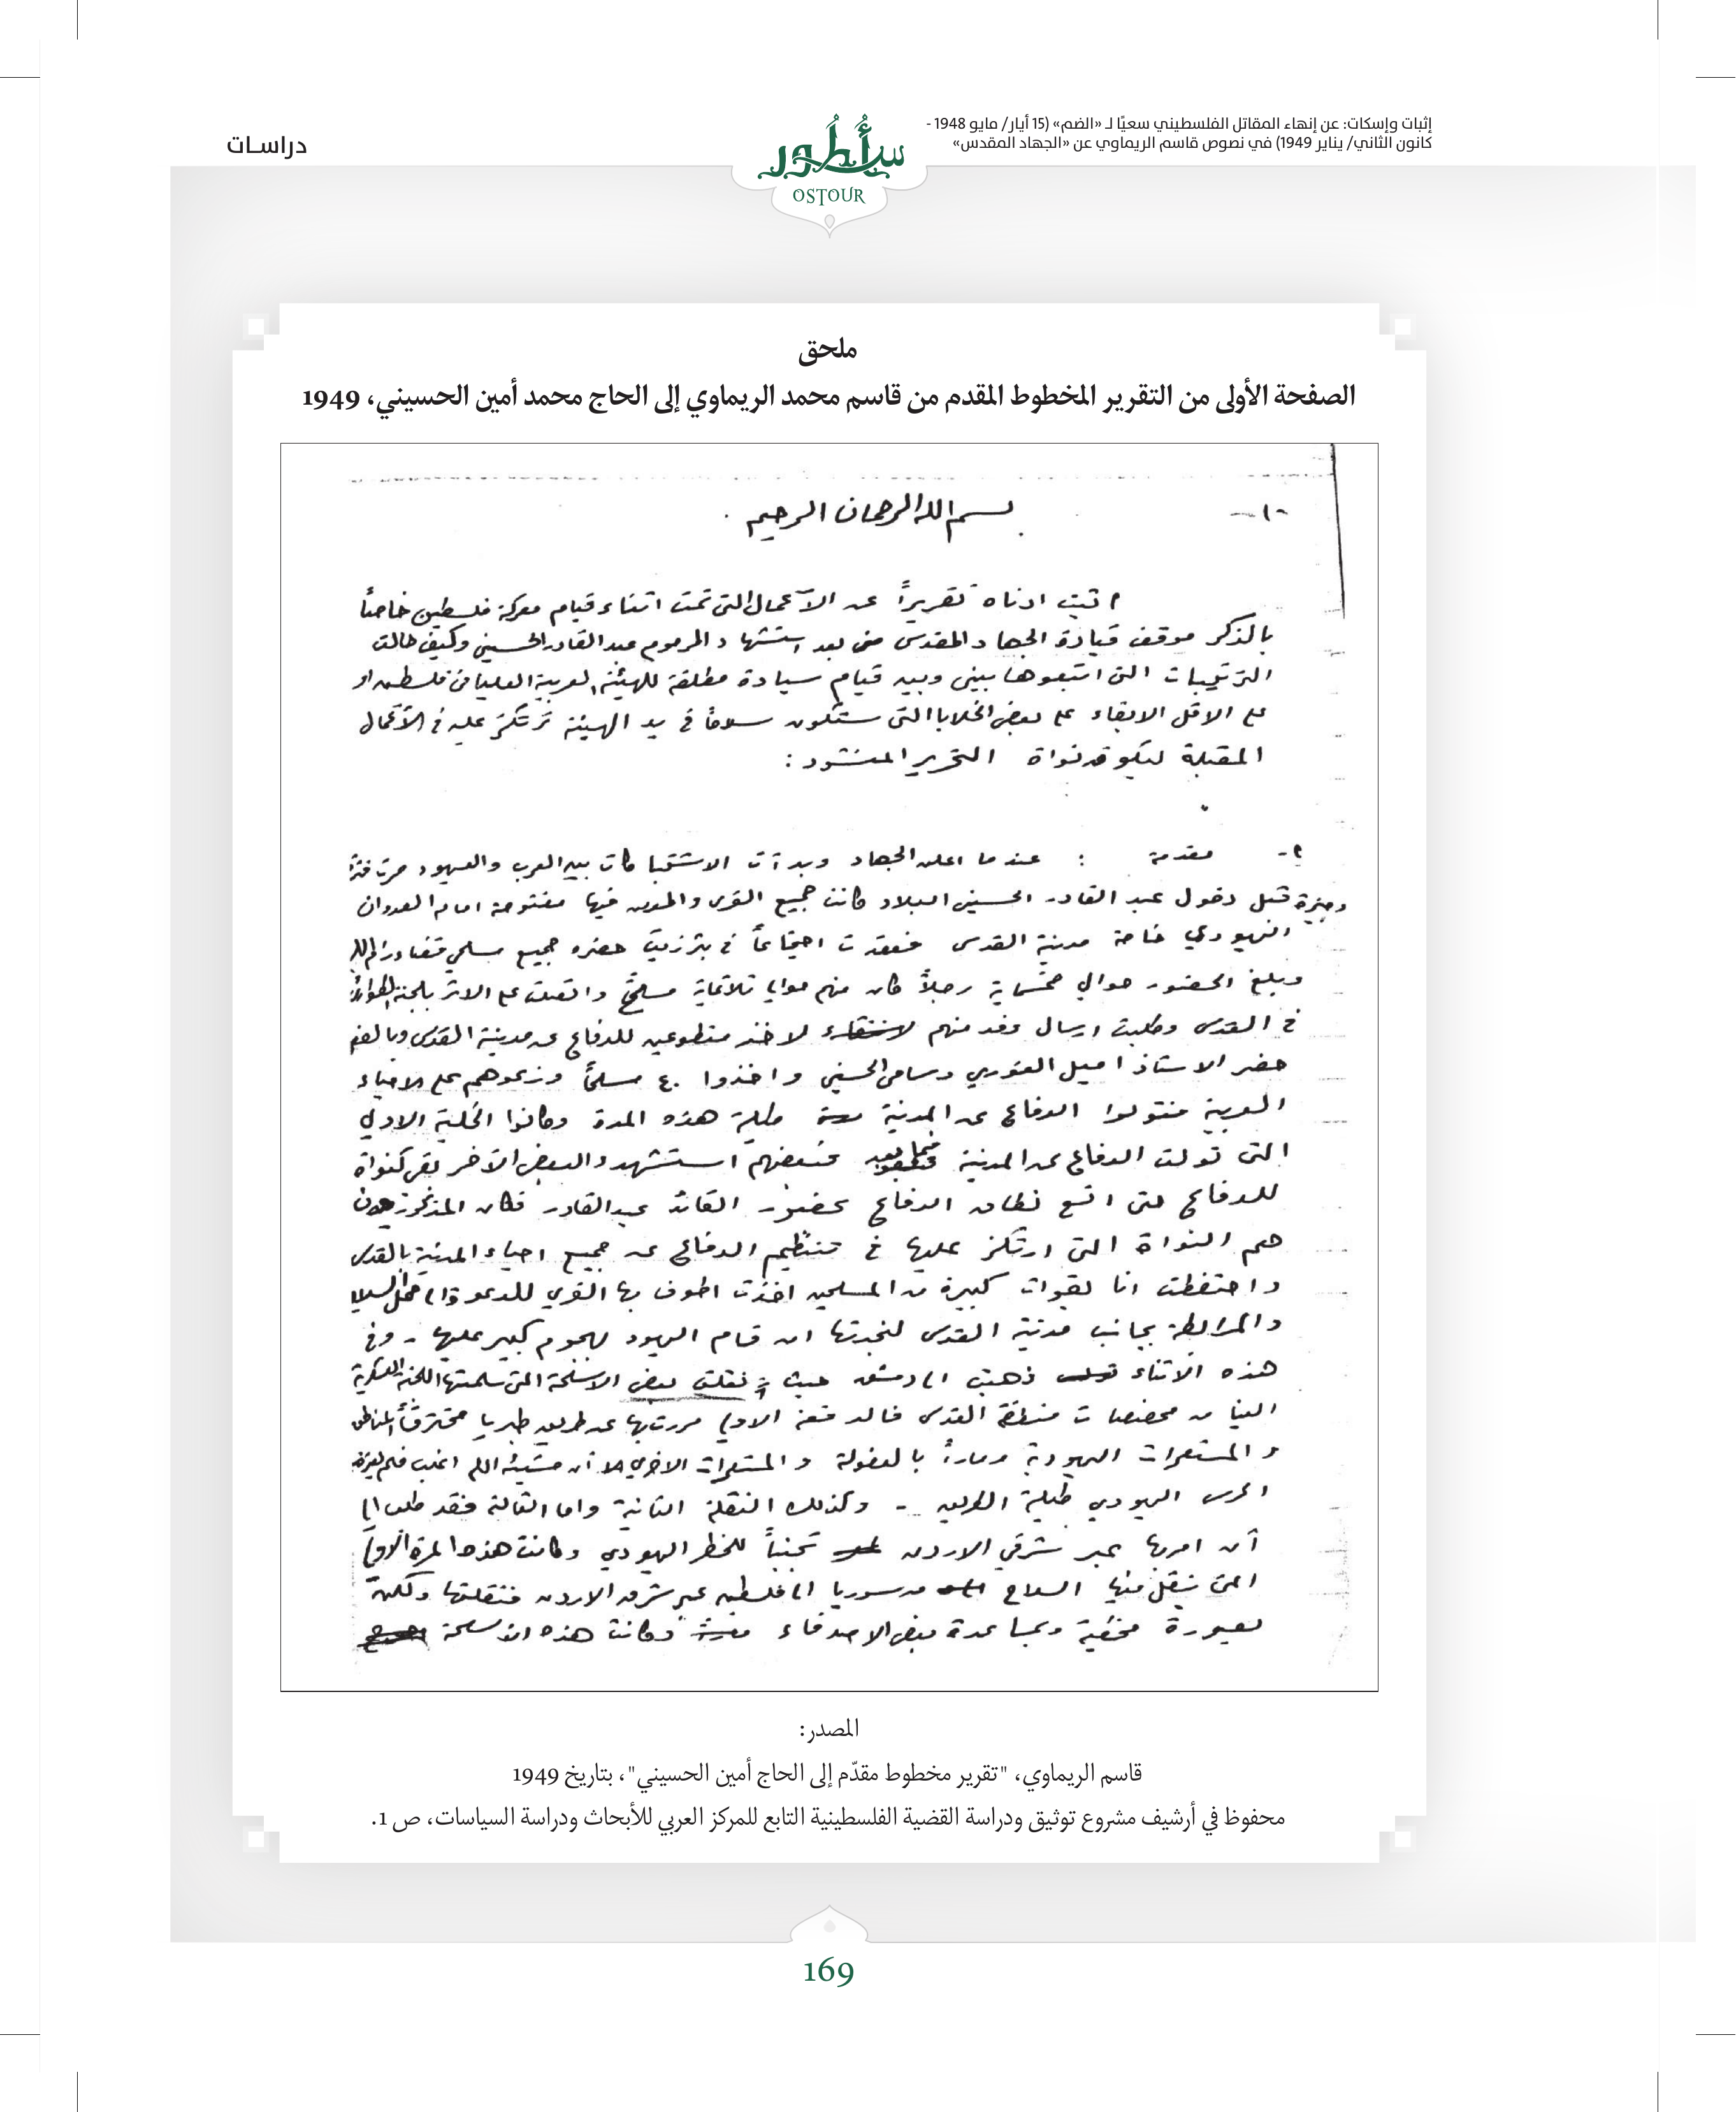 إثبات وإسكات: عن إنهاء المقاتل الفلسطيني سعيًا لـ «الضم» (15 أيار/ مايو 1948 -
كانون الثاني/ يناير 1949) في نصوص قاسم الريماوي عن «الجهاد المقدس»
أسطور
OSTOUR
دراسـات
ملحق
الصفحة الأولى من التقرير المخطوط المقدم من قاسم محمد الريماوي إلى الحاج محمد أمين الحسيني، 1949
-١-
بسم الله الرحمان الرحيم
اثبت ادناه تقريراً عن الآعمال التي تمت اثناء قيام معركة فلسطين خاصاً
بالذكر موقف قيادة الجهاد المقدس بعد استشهاد المرحوم عبد القادر الحسيني وكيف طالت
الترتيبات التي اتبعوها بيني وبين قيام سيادة مطلقة للهيئة العربية العليا في فلسطين او
على الاقل الابقاء على بعض الخلايا التي ستكون سلاحاً في يد الهيئة ترتكز عليه في الأعمال
المقبلة لتكون نواة التحرير المنشود :
مقدمة : عندما اعلن الجهاد وبدآت الاشتباكات بين العرب واليهود مرت فترة
وجيزة قبل دخول عبد القادر الحسيني البلاد كانت جميع القرى والمدن فيها مفتوحة امام العدوان
اليهودي خاصة مدينة القدس فعقدت اجتماعاً في بئر زيت حضره جميع مسلحي قضاء رام الله
وبلغ الحضور حوالي خمسماية رجلاً كان منهم حوالي ثلاثماية مسلح واتصلت على الاثر بلجنة الطوارئ
في القدس وطلبت ارسال وفد منهم لاخذ متطوعين للدفاع عن مدينة القدس وبالفعل
حضر الاستاذ اميل الغوري وسامي الحسيني واخذوا ٤٠ مسلحاً وزعوهم على الاحياء
العربية فتولوا الدفاع عن المدينة طيلة هذه المدة وكانوا الخلية الاولى
التي تولت الدفاع عن المدينة فيما بعد فبعضهم استشهد والبعض الآخر بقي كنواة
للدفاع حتى اتسع نطاق الدفاع بحضور القائد عبد القادر فكان المذكورون
هم النواة التي ارتكز عليها في تنظيم الدفاع عن جميع احياء المدينة بالقدس
واحتفظت انا بقوات كبيرة من المسلحين اخذت اطوف بها القرى للدعوة الى حمل السلاح
والمرابطة بجانب مدينة القدس لنجدتها ان قام اليهود بهجوم كبير عليها - وفي
هذه الاثناء ذهبت الى دمشق حيث نقلت بعض الاسلحة التي سلمتها اللجنة العسكرية
الينا من مخصصات منطقة القدس فالدفعة الاولى مررت بها عن طريق طبريا مخترقاً المناطق
والمستعمرات اليهودية وماراً بالعفولة والمستعمرات الاخرى الا أن مشيئة الله
الحرس اليهودي طيلة الطريق - وكذلك النقلة الثانية واما الثالثة فقد طلب الي
أن امر بها عبر شرقي الاردن تجنباً للخطر اليهودي وكانت هذه المرة الأولى
التي ينقل فيها السلاح من سوريا الى فلسطين عبر شرق الاردن فنقلتها ولكن
بصورة مخفية وبمساعدة بعض الاصدقاء وكانت هذه الاسلحة
المصدر:
قاسم الريماوي، "تقرير مخطوط مقدّم إلى الحاج أمين الحسيني"، بتاريخ 1949
محفوظ في أرشيف مشروع توثيق ودراسة القضية الفلسطينية التابع للمركز العربي للأبحاث ودراسة السياسات، ص 1.
169